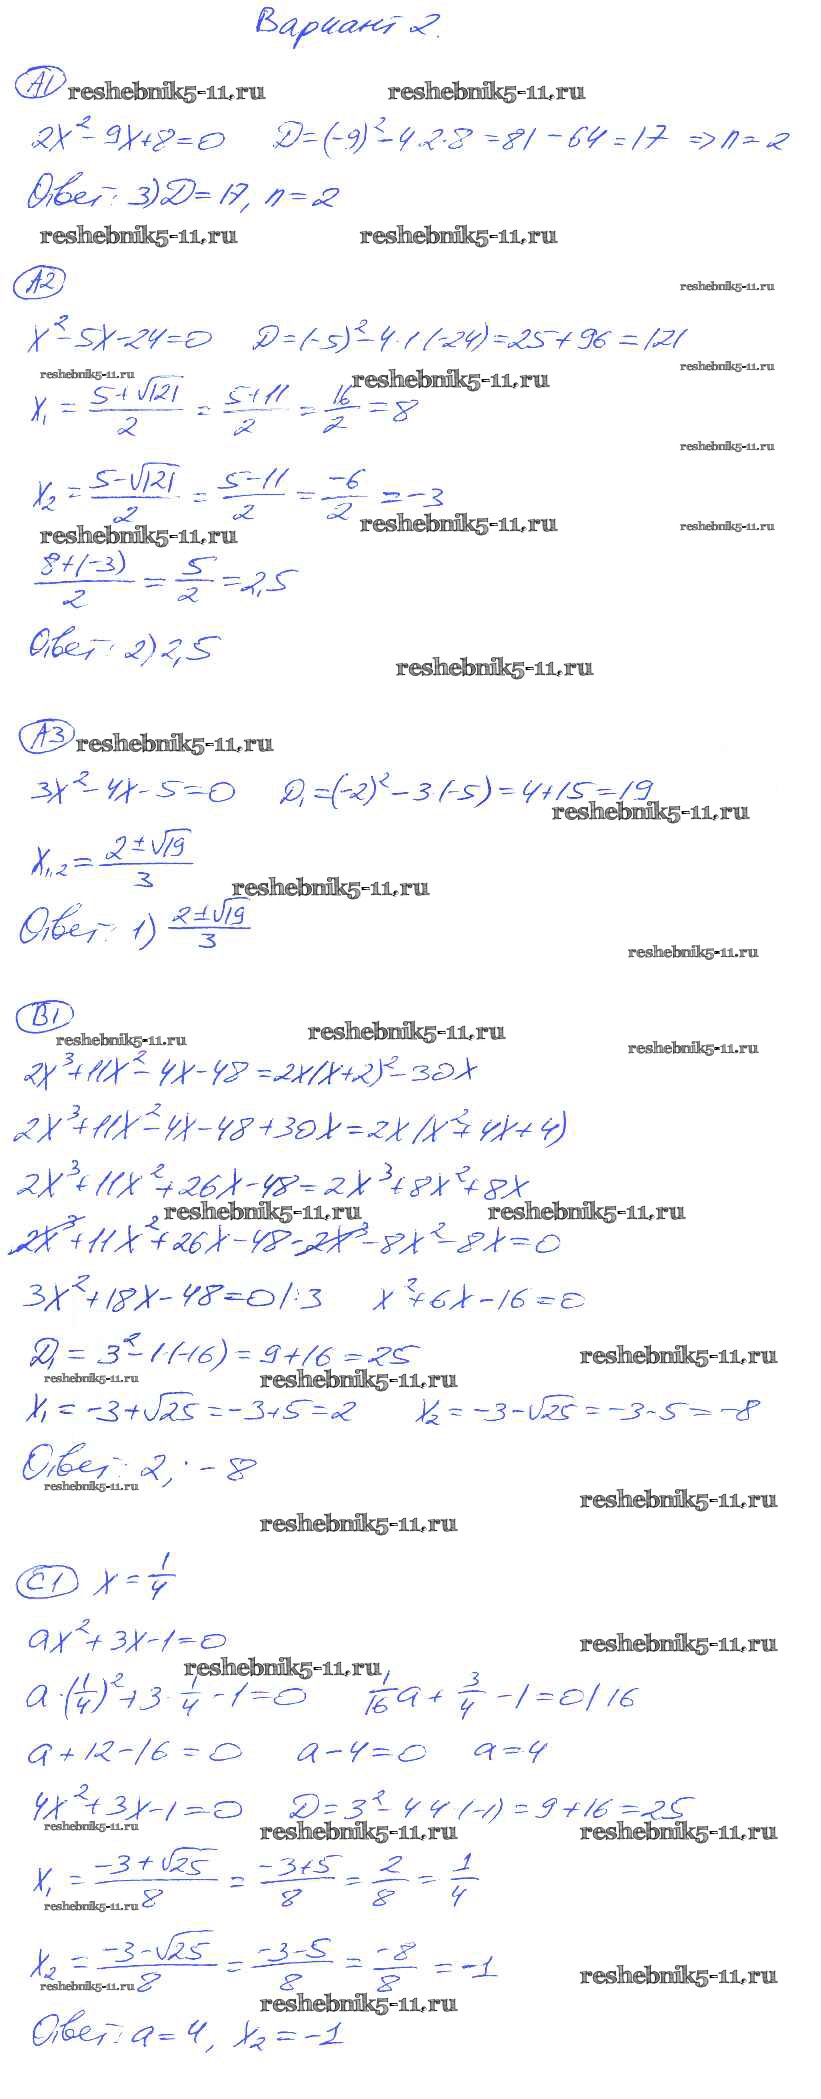 Вариант 2.
А1
reshebnik5-11.ru reshebnik5-11.ru
2x²-9x+8=0 D=(-9)²-4·2·8=81-64=17 => n=2
Ответ: 3) D=17, n=2
reshebnik5-11.ru reshebnik5-11.ru
А2
reshebnik5-11.ru
x²-5x-24=0 D=(-5)²-4·1·(-24)=25+96=121
reshebnik5-11.ru reshebnik5-11.ru reshebnik5-11.ru
x₁=(5+√121)/2=(5+11)/2=16/2=8
reshebnik5-11.ru
x₂=(5-√121)/2=(5-11)/2=-6/2=-3
reshebnik5-11.ru reshebnik5-11.ru reshebnik5-11.ru
(8+(-3))/2=5/2=2,5
Ответ: 2) 2,5
reshebnik5-11.ru
А3 reshebnik5-11.ru
3x²-4x-5=0 D₁=(-2)²-3·(-5)=4+15=19
reshebnik5-11.ru
x₁,₂=(2±√19)/3
reshebnik5-11.ru
Ответ: 1) (2±√19)/3
reshebnik5-11.ru
В1
reshebnik5-11.ru reshebnik5-11.ru reshebnik5-11.ru
2x³+11x²-4x-48=2x(x+2)²-30x
2x³+11x²-4x-48+30x=2x(x²+4x+4)
2x³+11x²+26x-48=2x³+8x²+8x
reshebnik5-11.ru reshebnik5-11.ru
2x³+11x²+26x-48-2x³-8x²-8x=0
3x²+18x-48=0 |:3 x²+6x-16=0
D₁=3²-1·(-16)=9+16=25 reshebnik5-11.ru
reshebnik5-11.ru reshebnik5-11.ru
x₁=-3+√25=-3+5=2 x₂=-3-√25=-3-5=-8
Ответ: 2; -8
reshebnik5-11.ru reshebnik5-11.ru
reshebnik5-11.ru
С1 x=1/4
ax²+3x-1=0 reshebnik5-11.ru
reshebnik5-11.ru
a·(1/4)²+3·1/4-1=0 1/16a+3/4-1=0 |·16
a+12-16=0 a-4=0 a=4
4x²+3x-1=0 D=3²-4·4·(-1)=9+16=25
reshebnik5-11.ru reshebnik5-11.ru reshebnik5-11.ru
x₁=(-3+√25)/8=(-3+5)/8=2/8=1/4
reshebnik5-11.ru
x₂=(-3-√25)/8=(-3-5)/8=-8/8=-1
reshebnik5-11.ru reshebnik5-11.ru
reshebnik5-11.ru
Ответ: a=4, x₂=-1